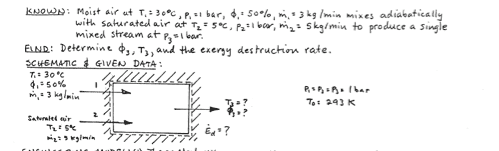 KNOWN: Moist air at T₁ = 30°C, P₁ = 1 bar, ϕ₁ = 50%, ṁ₁ = 3 kg/min mixes adiabatically
with saturated air at T₂ = 5°C, P₂ = 1 bar, ṁ₂ = 5 kg/min to produce a single
mixed stream at P₃ = 1 bar.
FIND: Determine ϕ₃, T₃, and the exergy destruction rate.
SCHEMATIC & GIVEN DATA:
T₁ = 30°C
ϕ₁ = 50%
ṁ₁ = 3 kg/min
1
P₁ = P₂ = P₃ = 1 bar
T₀ = 293 K
T₃ = ?
ϕ₃ = ?
2
Saturated air
T₂ = 5°C
ṁ₂ = 5 kg/min
Ėd = ?